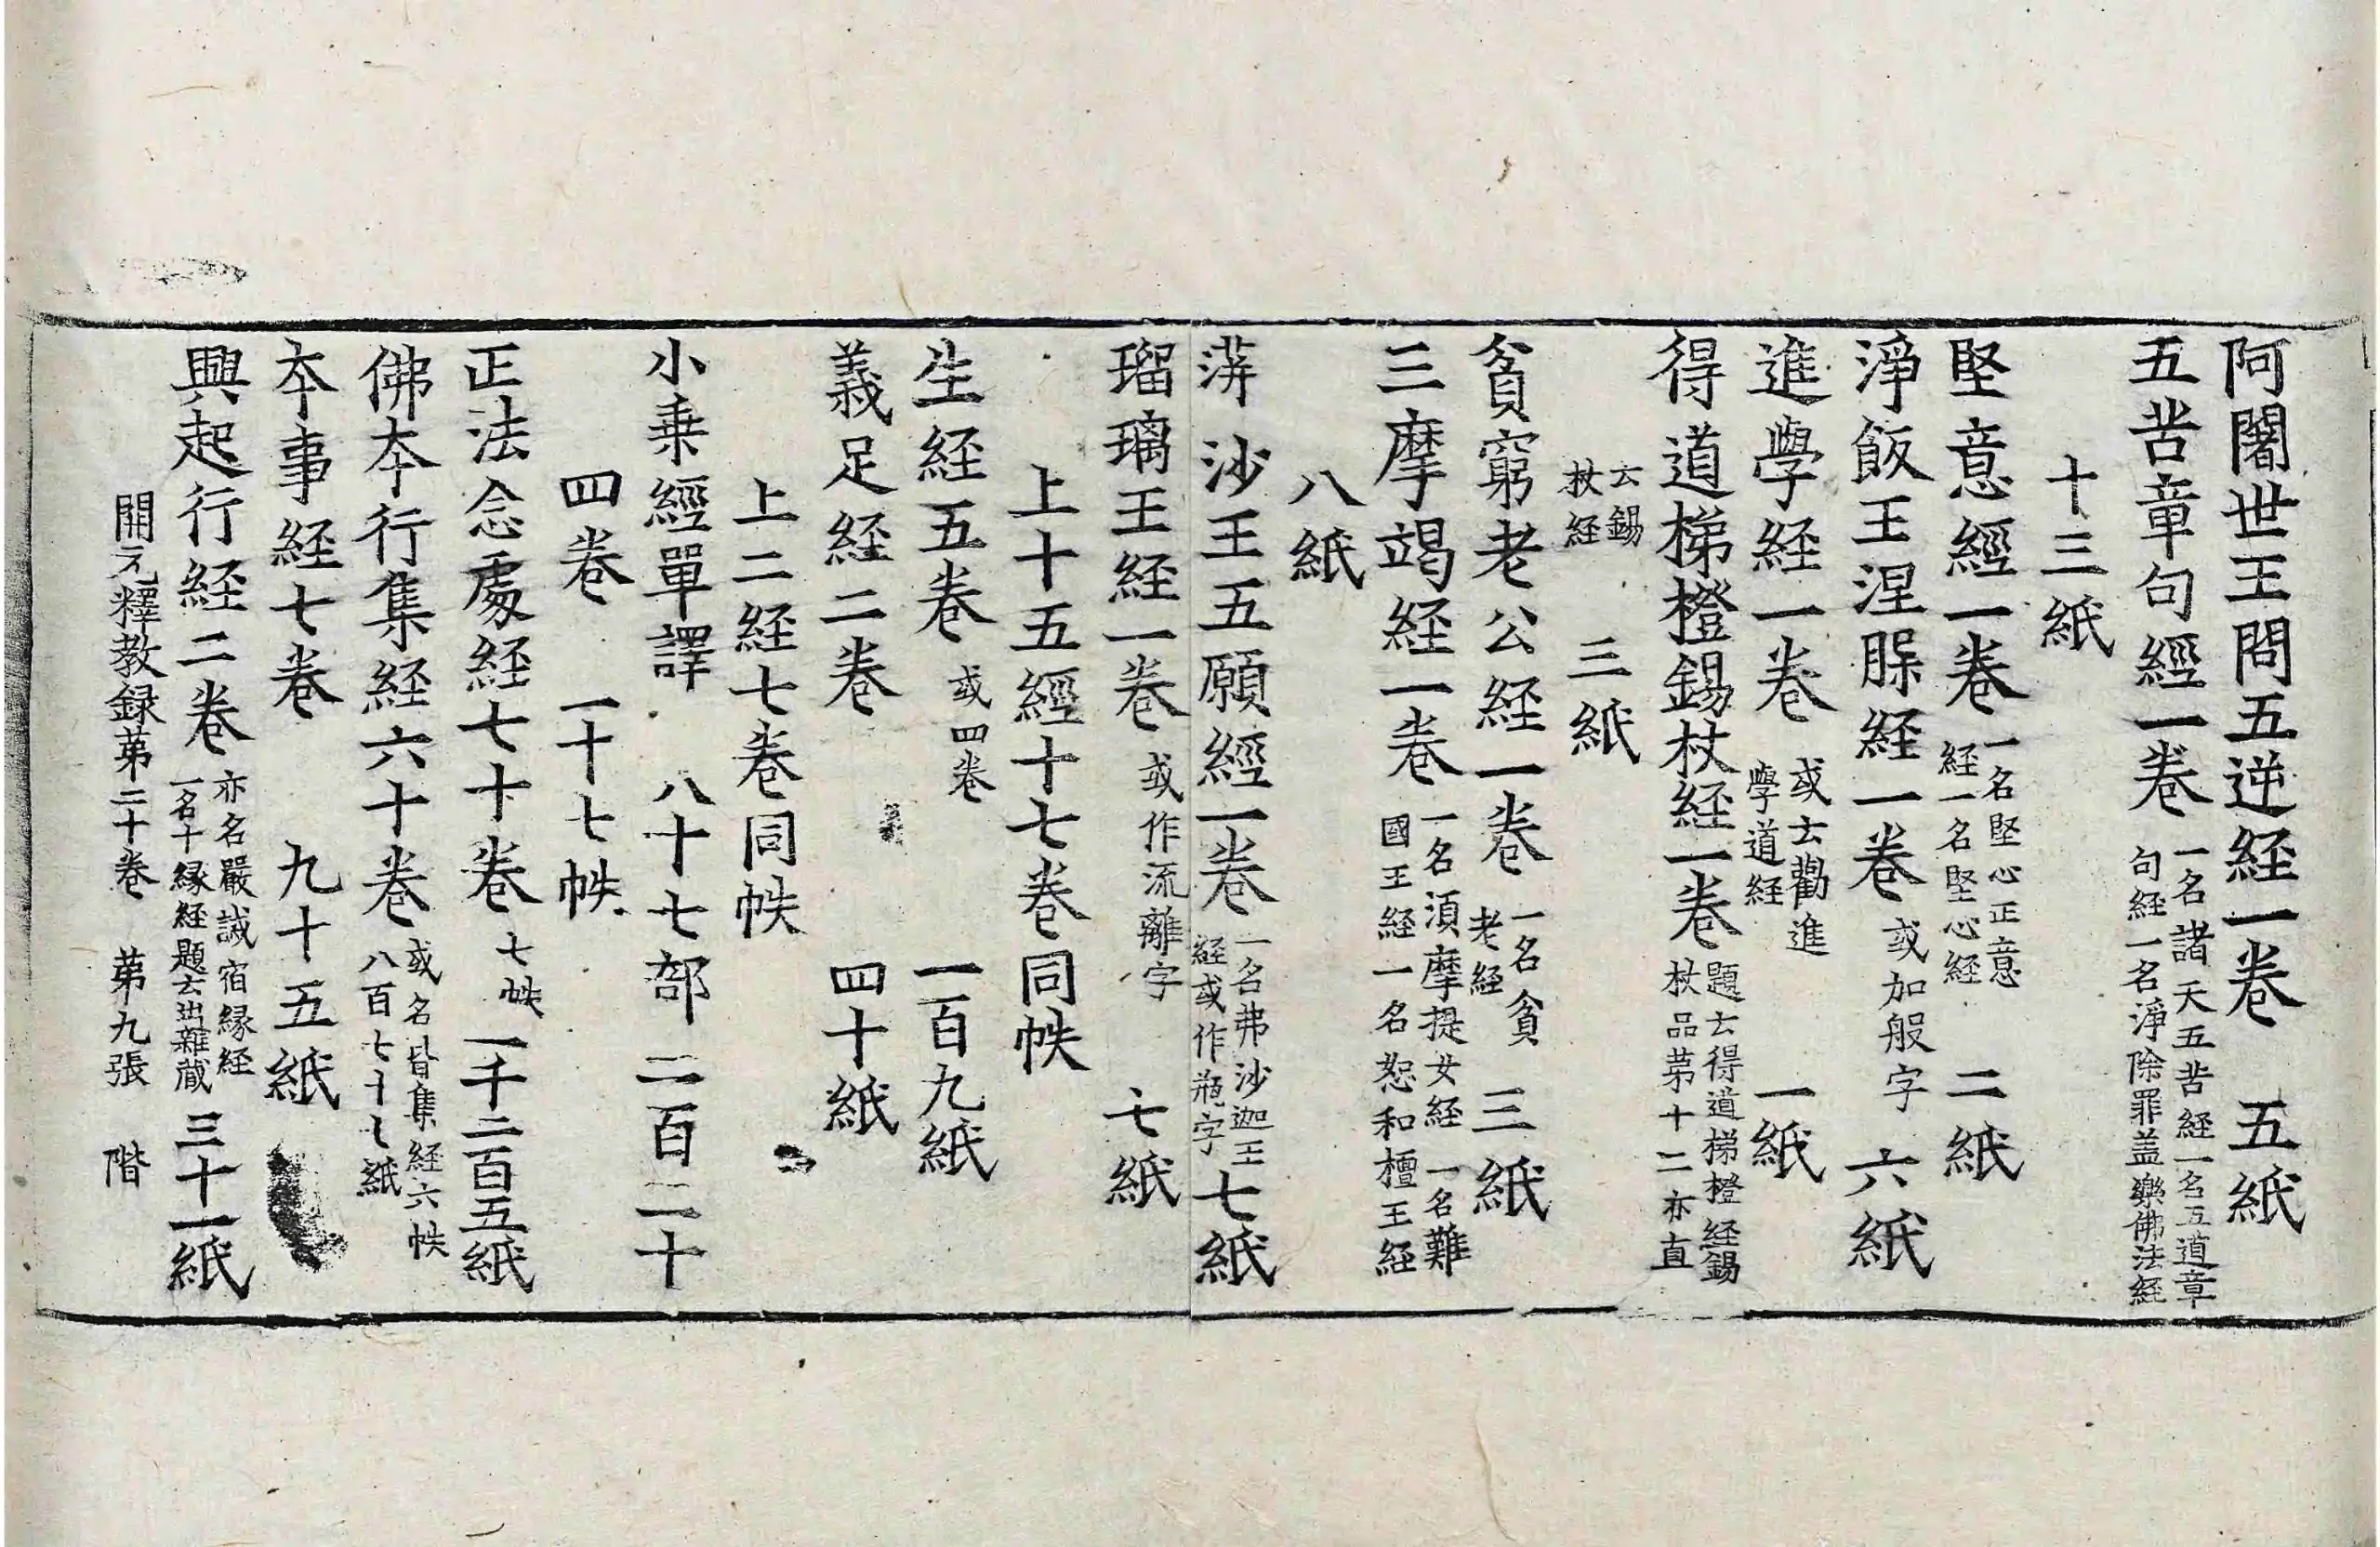 阿闍世王問五逆経一卷　五紙
五苦章句經一卷　一名諸天五苦経一名五道章句経一名淨除罪盖樂佛法経
十三紙
堅意經一卷　一名堅心正意経一名堅心経　二紙
淨飯王涅槃経一卷　或加般字　六紙
進學経一卷　或云勸進學道経　一紙
得道梯橙錫杖経一卷　題云得道梯橙経錫杖品苐十二亦直
云錫杖経　三紙
貧窮老公経一卷　一名貧老経　三紙
三摩竭経一卷　一名湏摩提女経一名難國王経一名恕和檀王経
八紙
蓱沙王五願經一卷　一名弗沙迦王経或作瓶字　七紙
瑠璃王経一卷　或作流離字　七紙
上十五經十七卷同帙
生経五卷　或四卷　一百九紙
義足経二卷　四十紙
上二経七卷同帙
小乗經單譯　八十七部　二百二十
四卷　一十七帙
正法念處経七十卷　七帙　一千二百五紙
佛本行集経六十卷　或名昔集経六帙八百七十七紙
本事経七卷　九十五紙
興起行経二卷　亦名嚴誡宿縁経一名十縁経題云出雜蔵　三十一紙
開元釋教録苐二十卷　苐九張　階